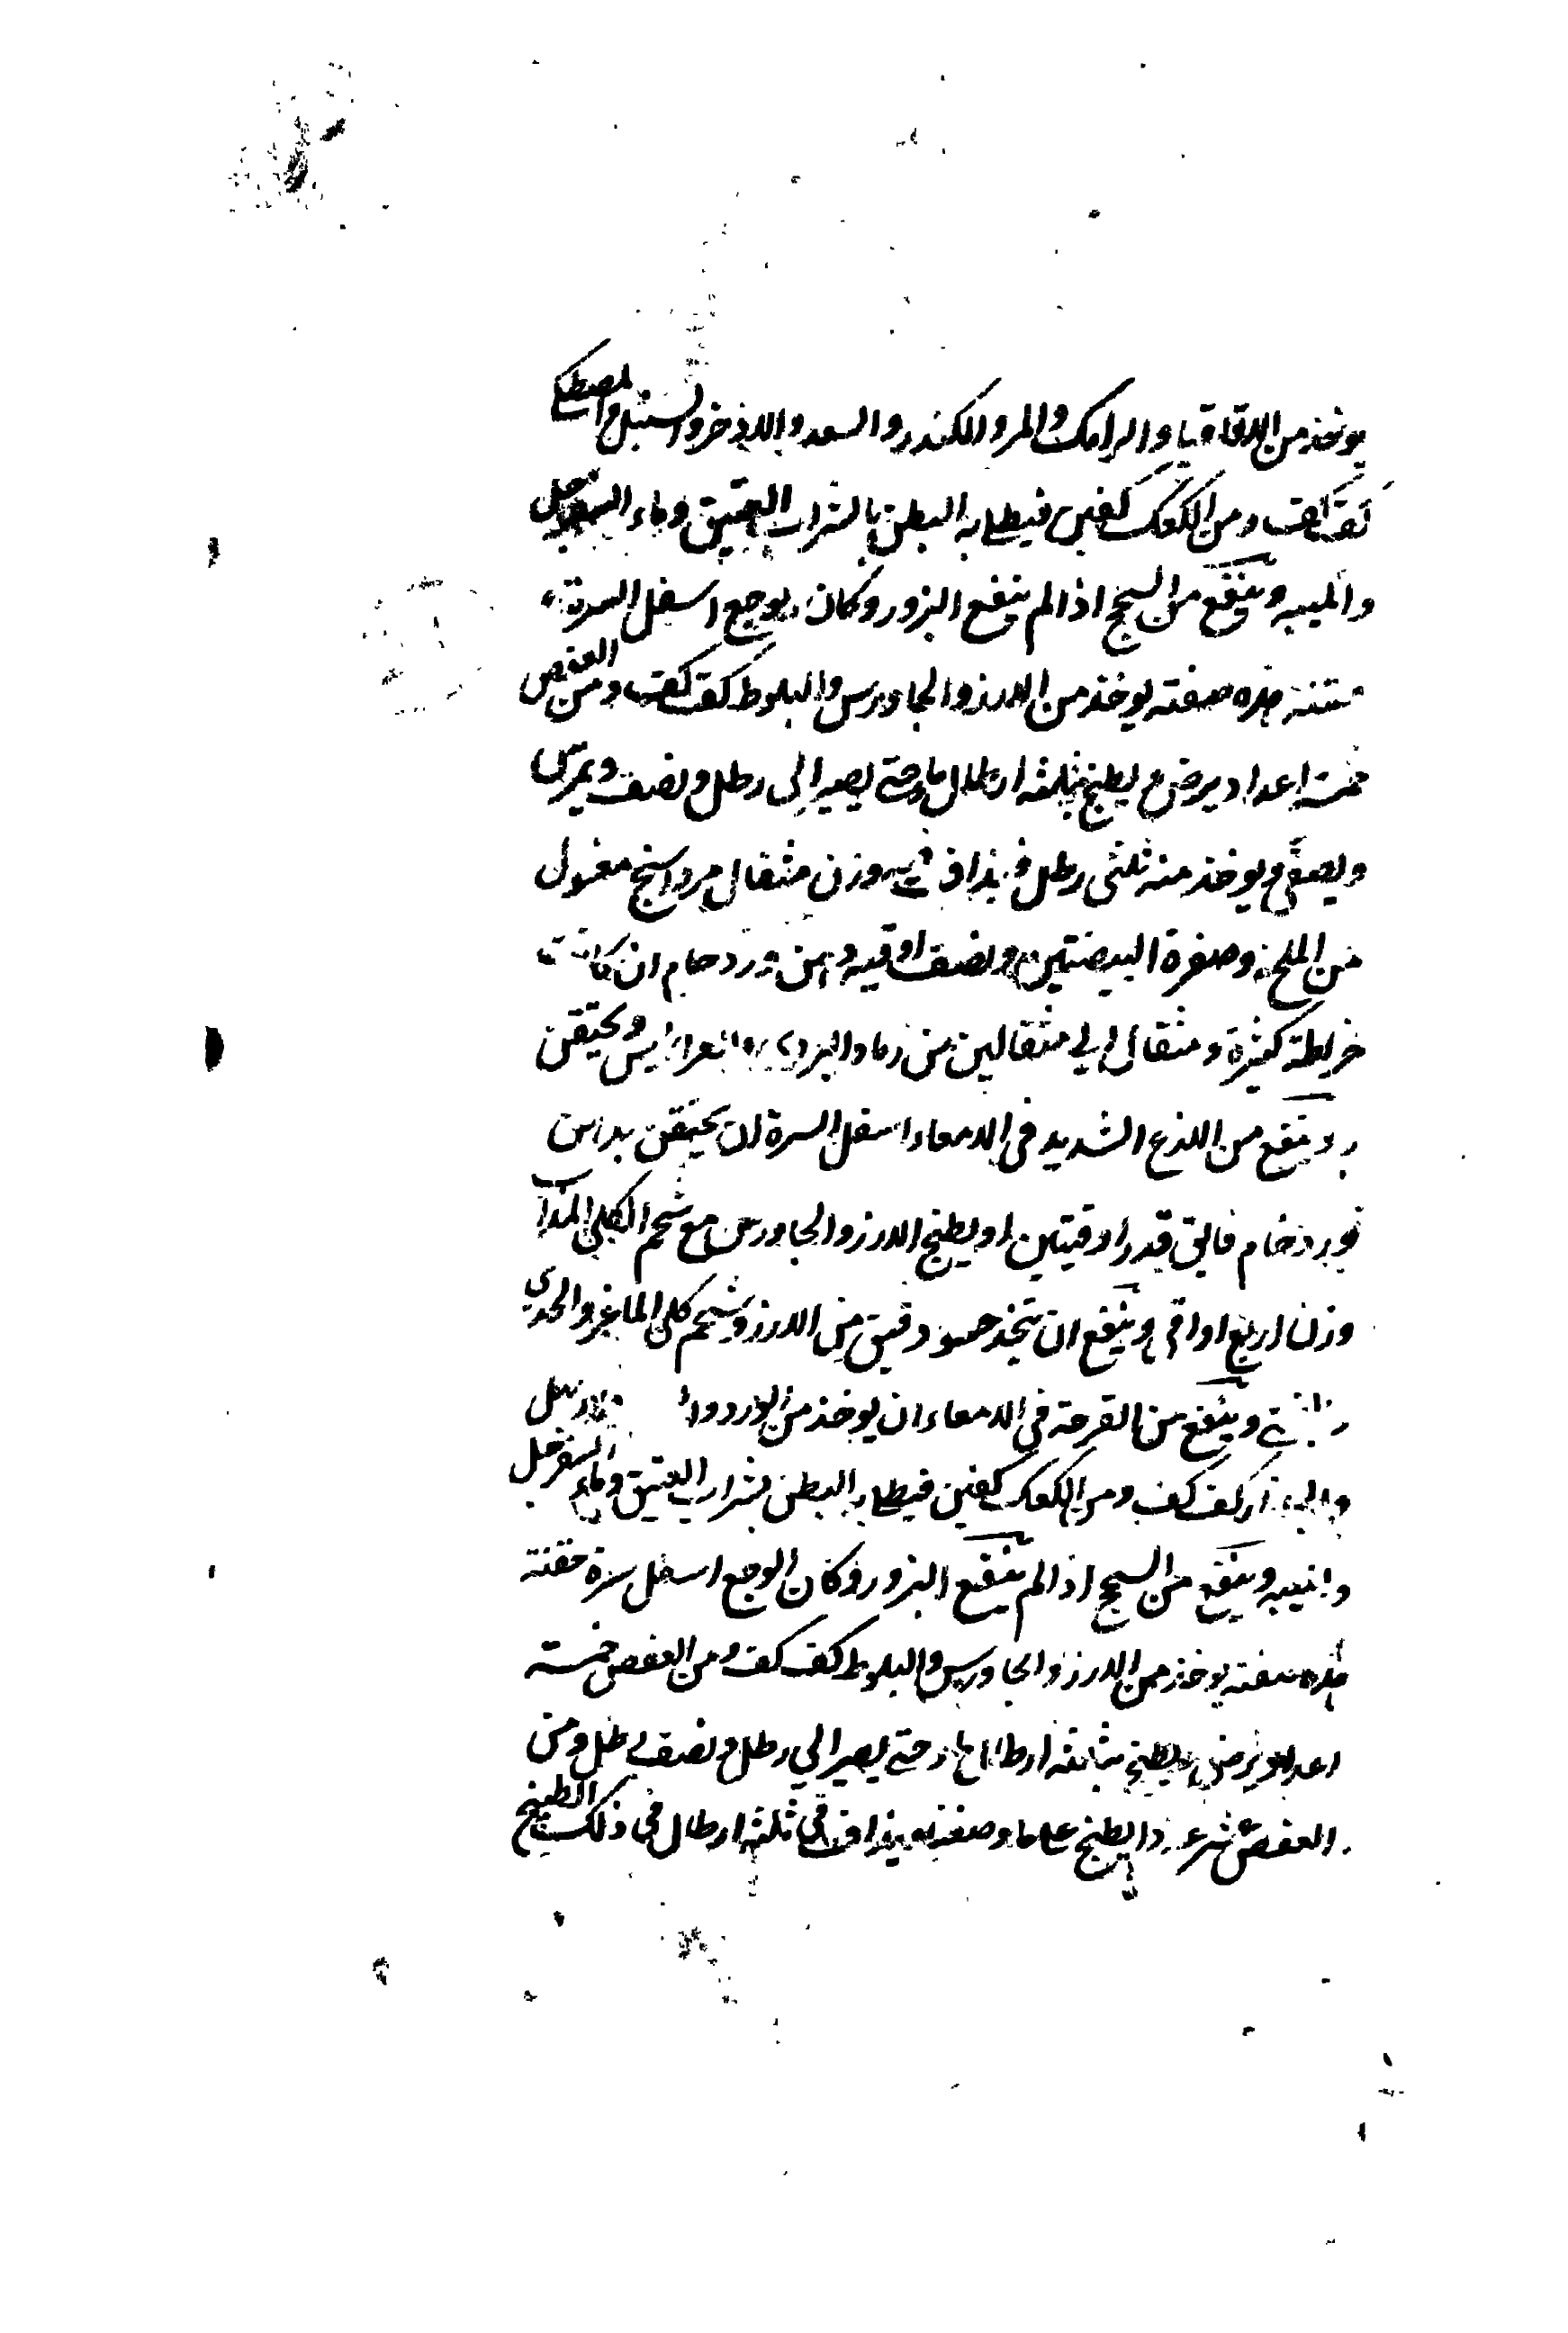 يوخذ من الاقاقيا والرامك والمر والكندر والسعد والاذخر والسنبل والمصطكى
كف كف ومن الكعك كفين فيطلى به البطن بالشراب العتيق وماء السفرجل
والميبه وينفع من السحج اذا لم ينفع البزور وكان يوجع اسفل السرة
هذه صفته يوخذ من الارز والجاورس والبلوط كف كف ومن العفص
خمسة اعداد يرض ويطبخ بثلثه ارطال ماء حتى يصير الى رطل ونصف ويمرس
ويصفى ويوخذ منه ثلثى رطل ويذاف فيه وزن مثقال مرداسنج مغسول
من الملح وصفرة البيضتين ونصف اوقيه دهن ورد خام ان كانت
خريطة كثيرة ومثقال الي مثقالين من رماد البردي والقراطيس ويحتقن
وينفع من اللذع الشديد في الامعاء اسفل السرة ان يحتقن بدهن
ورد خام فايق قدر اوقيتين او يطبخ الارز والجاورس مع شحم الكلى المذاب
وزن اربع اواقي وينفع ان يتخذ حسو دقيق من الارز وشحم كلى الماعز والجدي
وينفع من القرحة في الامعاء ان يوخذ من الورد
كف كف ومن الكعك كفين فيطلى به البطن بشراب العتيق وماء السفرجل
والميبه وينفع من السحج اذا لم ينفع البزور وكان الوجع اسفل سرة حقنة
هذه صفته يوخذ من الارز والجاورس والبلوط كف كف ومن العفص خمسة
اعداد يرض ويطبخ بثلثه ارطال ماء حتى يصير الي رطل ونصف ومن
العفص يطبخ على ما وصفنا ويذاف في ثلثه ارطال في ذلك الطبيخ